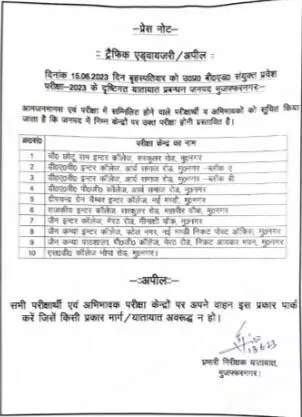 -प्रेस नोट-
- ट्रैफिक एडवायजरी/अपील-
दिनांक 15.06.2023 दिन बृहस्पतिवार को उ0प्र0 बी0एड0 संयुक्त प्रवेश
परीक्षा-2023 के दृष्टिगत यातायात प्रबन्धन जनपद मुजफ्फरनगर-
आमजनमानस एवं परीक्षा में सम्मिलित होने वाले परीक्षार्थी व अभिभावकों को सूचित किया
जाता है कि जनपद में निम्न केन्द्रों पर उक्त परीक्षा होनी प्रस्तावित है।
क्र0सं0 परीक्षा केन्द्र का नाम
1 चौ0 छोटू राम इन्टर कॉलेज, सरकुलर रोड, मु0नगर
2 डी0ए0वी0 इन्टर कॉलेज, आर्य समाज रोड, मु0नगर -ब्लॉक ए
3 डी0ए0वी0 इन्टर कॉलेज, आर्य समाज रोड, मु0नगर -ब्लॉक बी
4 डी0ए0वी0 पी0जी0 कॉलेज, आर्य समाज रोड, मु0नगर
5 दीपचन्द ग्रेन चैम्बर इन्टर कॉलेज, नई मण्डी, मु0नगर
6 राजकीय इन्टर कॉलेज, सरकुलर रोड, महावीर चौक, मु0नगर
7 जैन इन्टर कॉलेज, मेरठ रोड, मीनाक्षी चौक, मु0नगर
8 जैन कन्या इन्टर कॉलेज, पटेल नगर, नई मण्डी निकट पोस्ट ऑफिस, मु0नगर
9 जैन कन्या पाठशाला, पी0जी0 कॉलेज, मेरठ रोड, निकट आयकर भवन, मु0नगर
10 एस0डी0 कॉलेज भोपा रोड, मु0नगर।
-अपील-
सभी परीक्षार्थी एवं अभिभावक परीक्षा केन्द्रों पर अपने वाहन इस प्रकार पार्क
करें जिसें किसी प्रकार मार्ग/यातायात अवरूद्ध न हो।
13.6.23
प्रभारी निरीक्षक यातायात,
मुजफ्फरनगर।